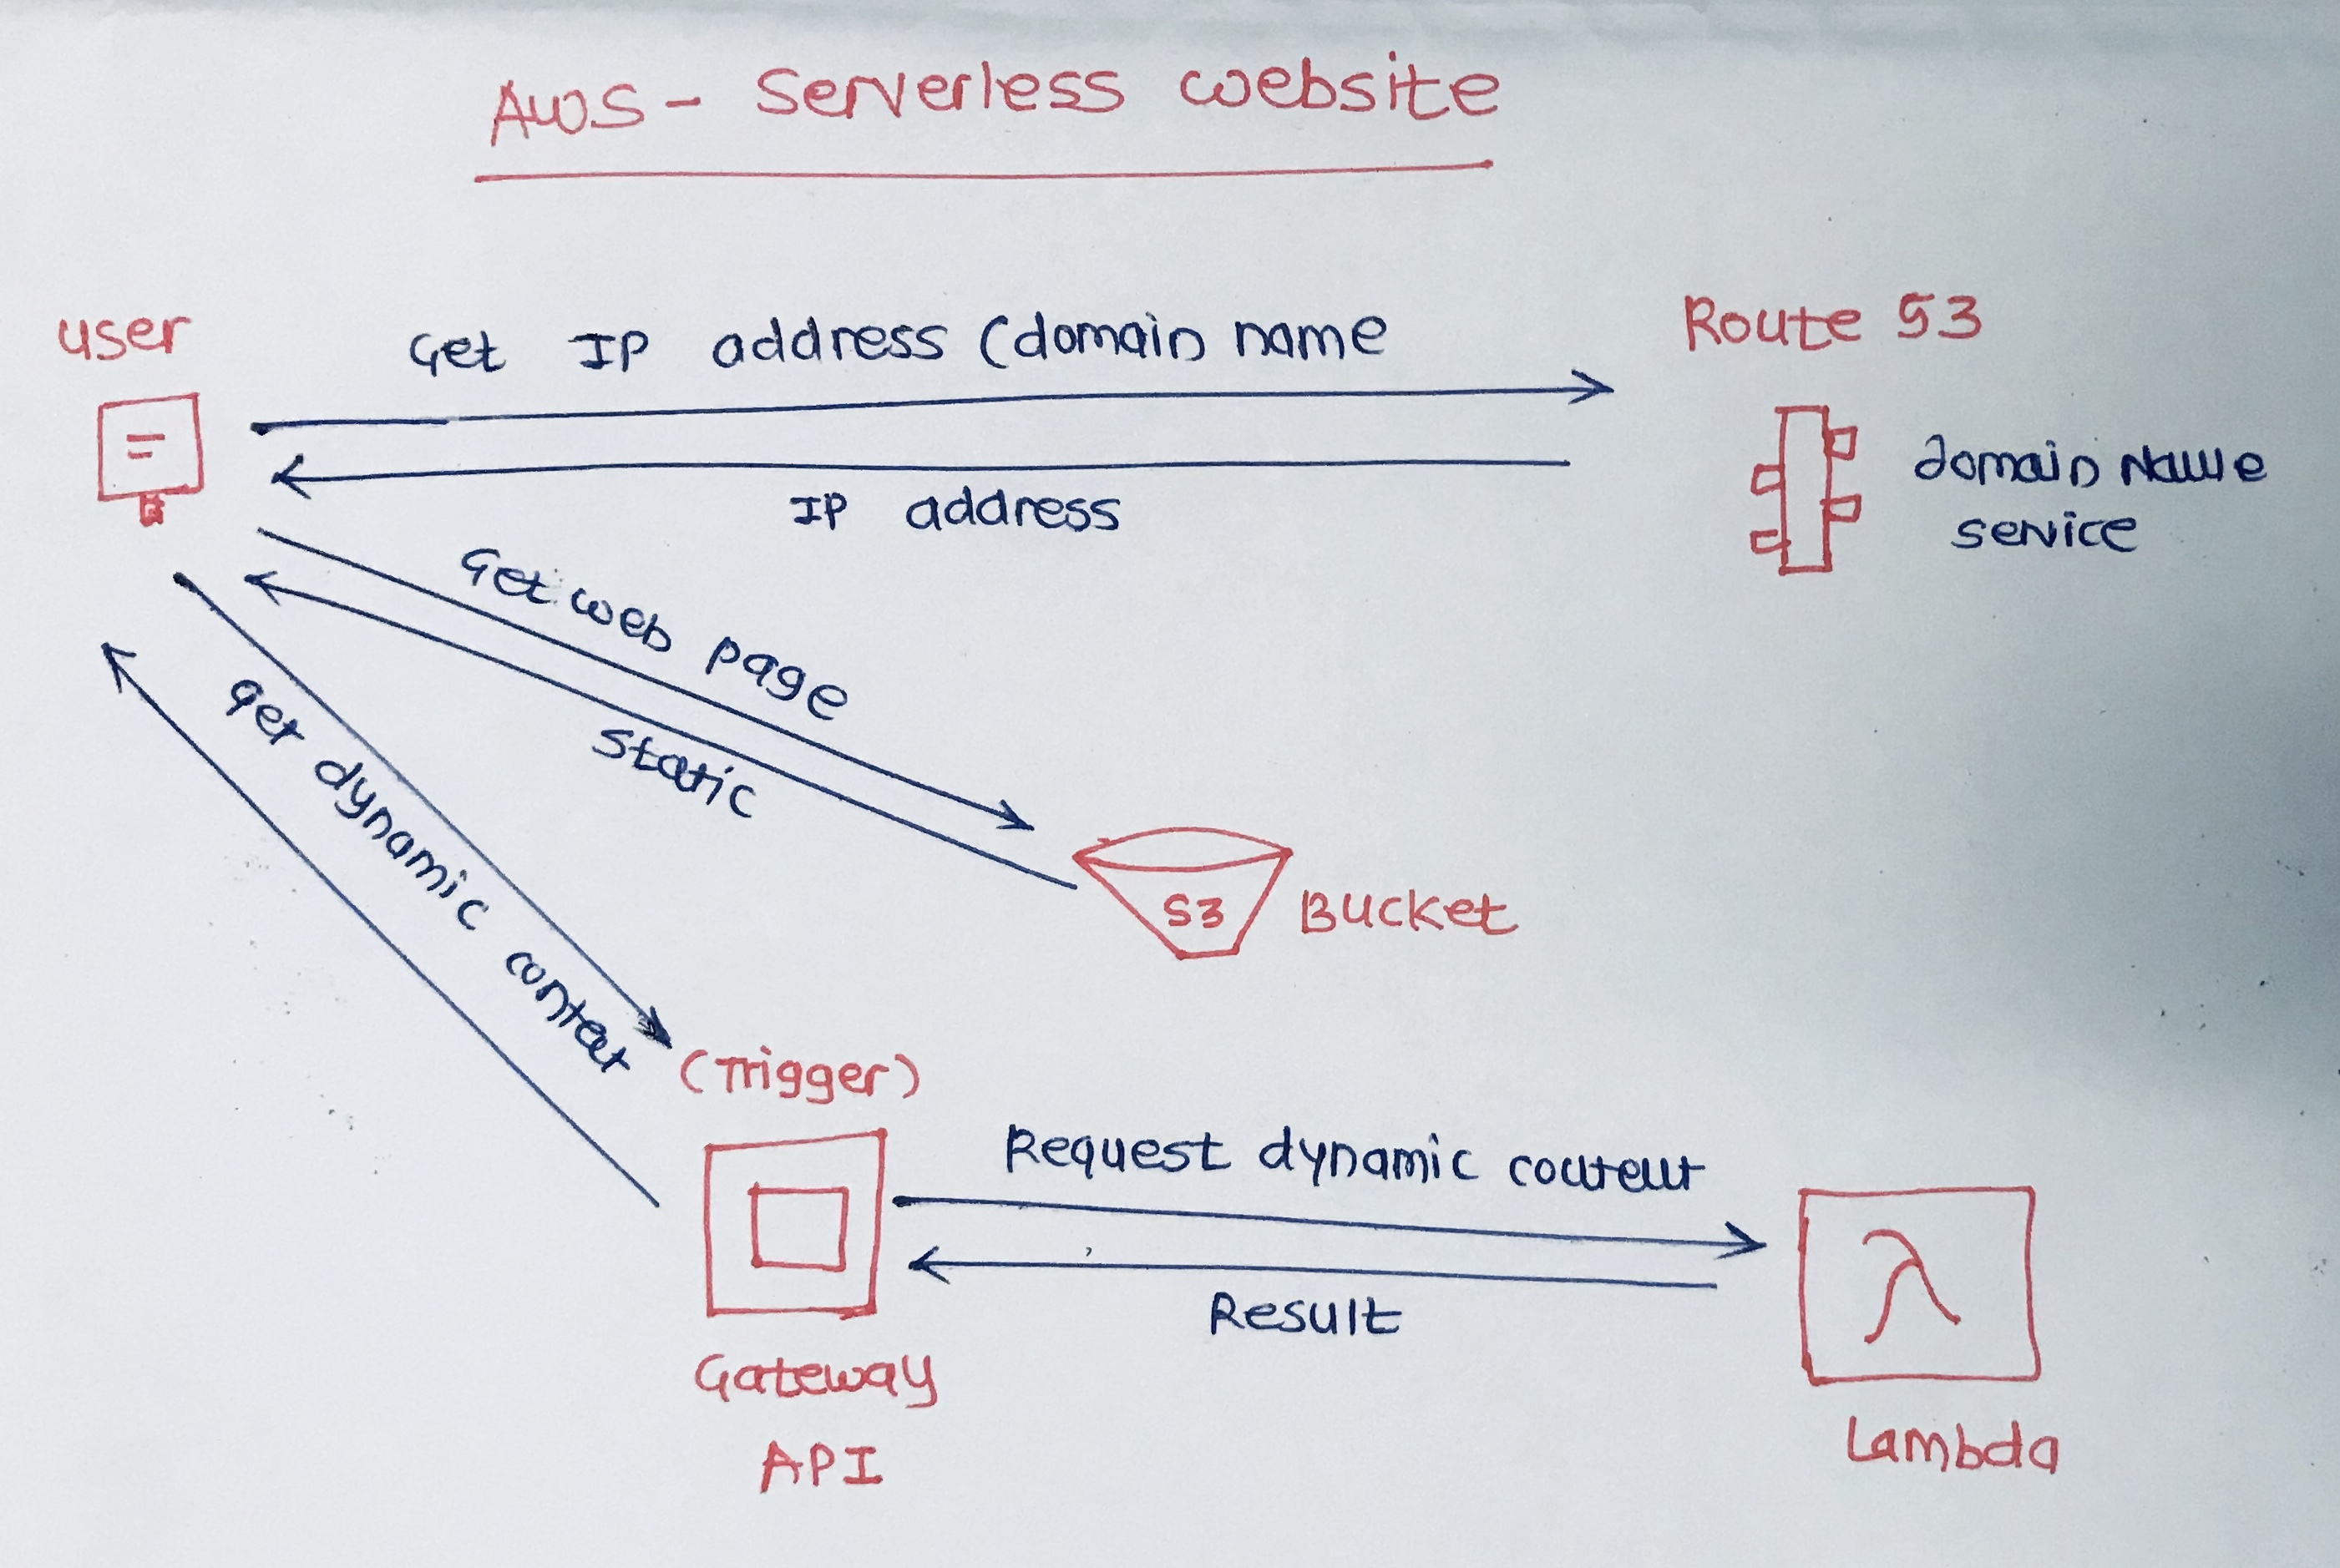 AWS - Serverless website
user
Get IP address (domain name
Route 53
IP address
domain Name
service
Get web page
Static
get dynamic content
S3
Bucket
(Trigger)
Request dynamic content
Result
Gateway
API
λ
Lambda